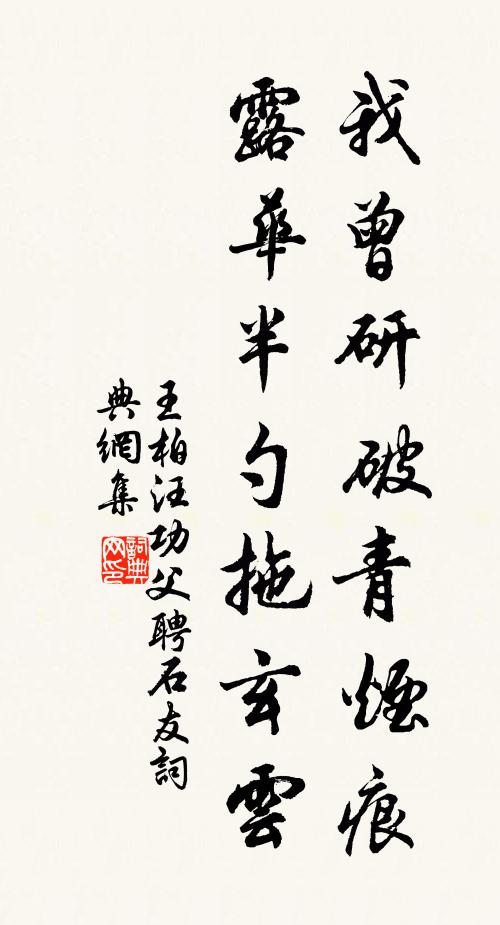 我曾研破青煙痕
露華半勺拖玄雲
王柏汪功父聘石友詞
典網集
詞典網印